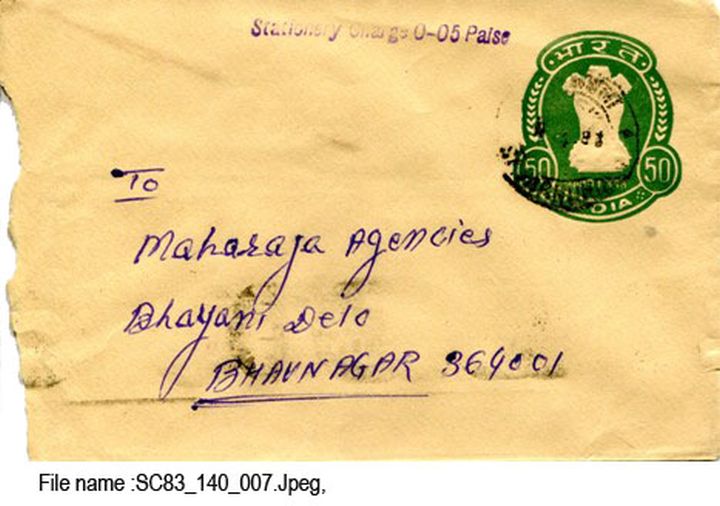 Stationery Charge 0-05 Paise
भारत
50 50
INDIA
To
Maharaja Agencies
Bhayani Delo
BHAVNAGAR 364001
File name :SC83_140_007.Jpeg,